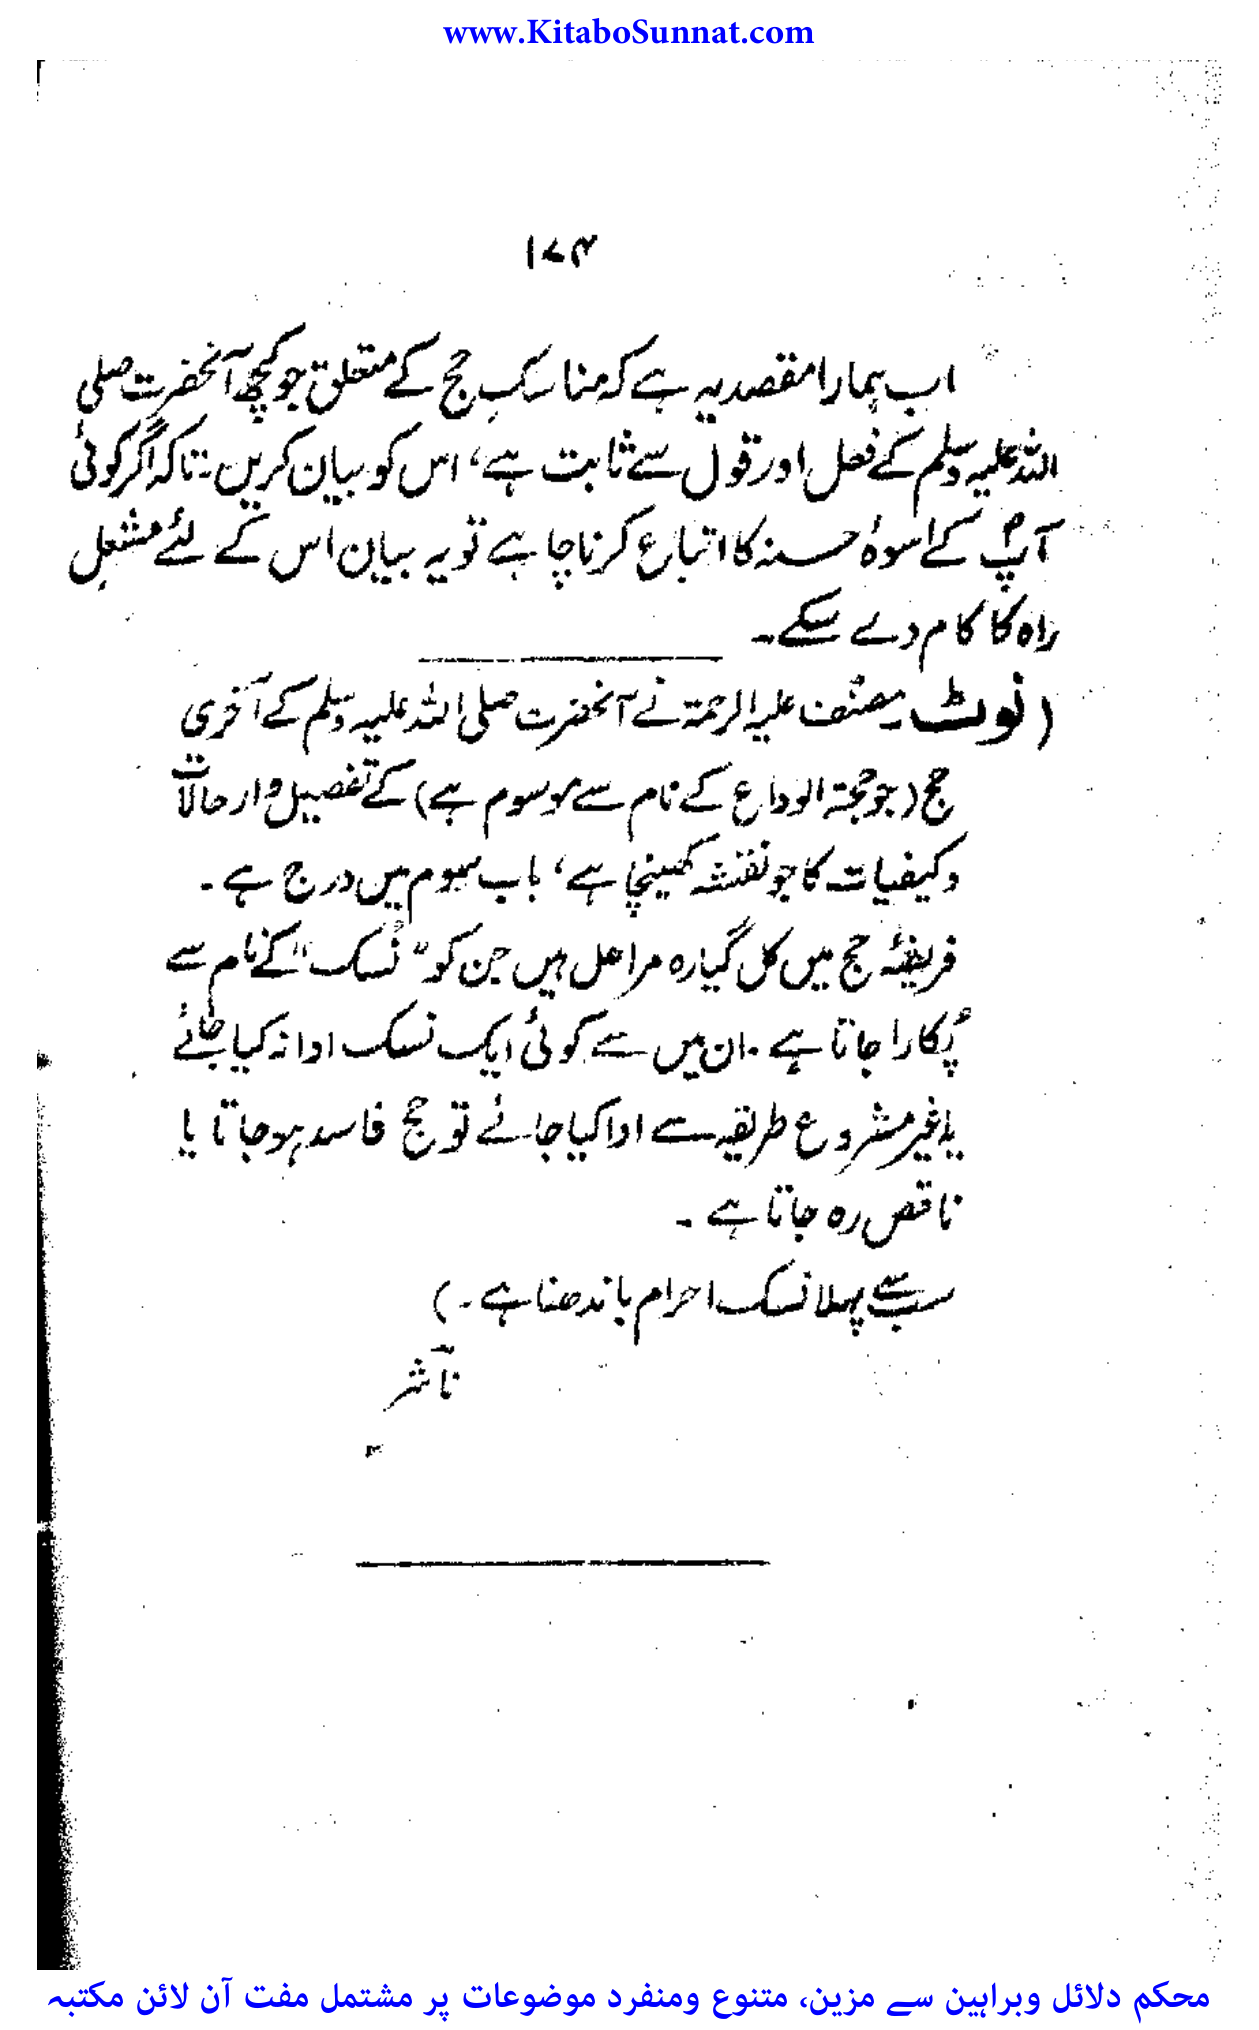 www.KitaboSunnat.com
۱۷۴
اب ہمارا مقصد یہ ہے کہ مناسکِ حج کے متعلق جو کچھ آنحضرت صلی
اللہ علیہ وسلم کے فعل اور قول سے ثابت ہے، اس کو بیان کریں۔ تاکہ اگر کوئی
آپؐ کے اسوۂ حسنہ کا اتباع کرنا چاہے تو یہ بیان اس کے لئے مشعلِ
راہ کا کام دے سکے۔
(نوٹ۔ مصنّف علیہ الرحمۃ نے آنحضرت صلی اللہ علیہ وسلم کے آخری
حج (جو حجۃ الوداع کے نام سے موسوم ہے) کے تفصیل وار حالات
و کیفیات کا جو نقشہ کھینچا ہے، باب سوم میں درج ہے۔
فریضۂ حج میں کل گیارہ مراحل ہیں جن کو "نُسک" کے نام سے
پُکارا جاتا ہے۔ ان میں سے کوئی ایک نسک ادا نہ کیا جائے
یا غیر مشروع طریقہ سے ادا کیا جائے تو حج فاسد ہو جاتا یا
ناقص رہ جاتا ہے۔
سب سے پہلا نسک احرام باندھنا ہے۔)
ناشر
محکم دلائل وبراہین سے مزین، متنوع ومنفرد موضوعات پر مشتمل مفت آن لائن مکتبہ